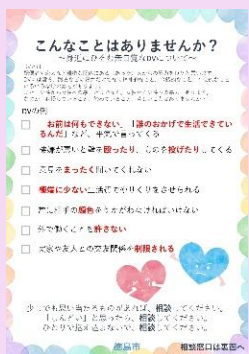 こんなことはありませんか？
～身近にひそむ無自覚なDVについて～
DVの例
「お前は何もできない」「誰のおかげで生活できてい
るんだ」など、平気で言ってくる
機嫌が悪いと壁を殴ったり、ものを投げたりしてくる
意見をまったく聞いてくれない
極端に少ない生活費でやりくりをさせられる
常に相手の顔色をうかがわなければいけない
外で働くことを許さない
実家や友人との交友関係を制限される
少しでも思い当たるものがあれば、相談してください。
「しんどい」と思ったら、相談してください。
ひとりで抱え込まないで、相談してください。
徳島市
相談窓口は裏面へ